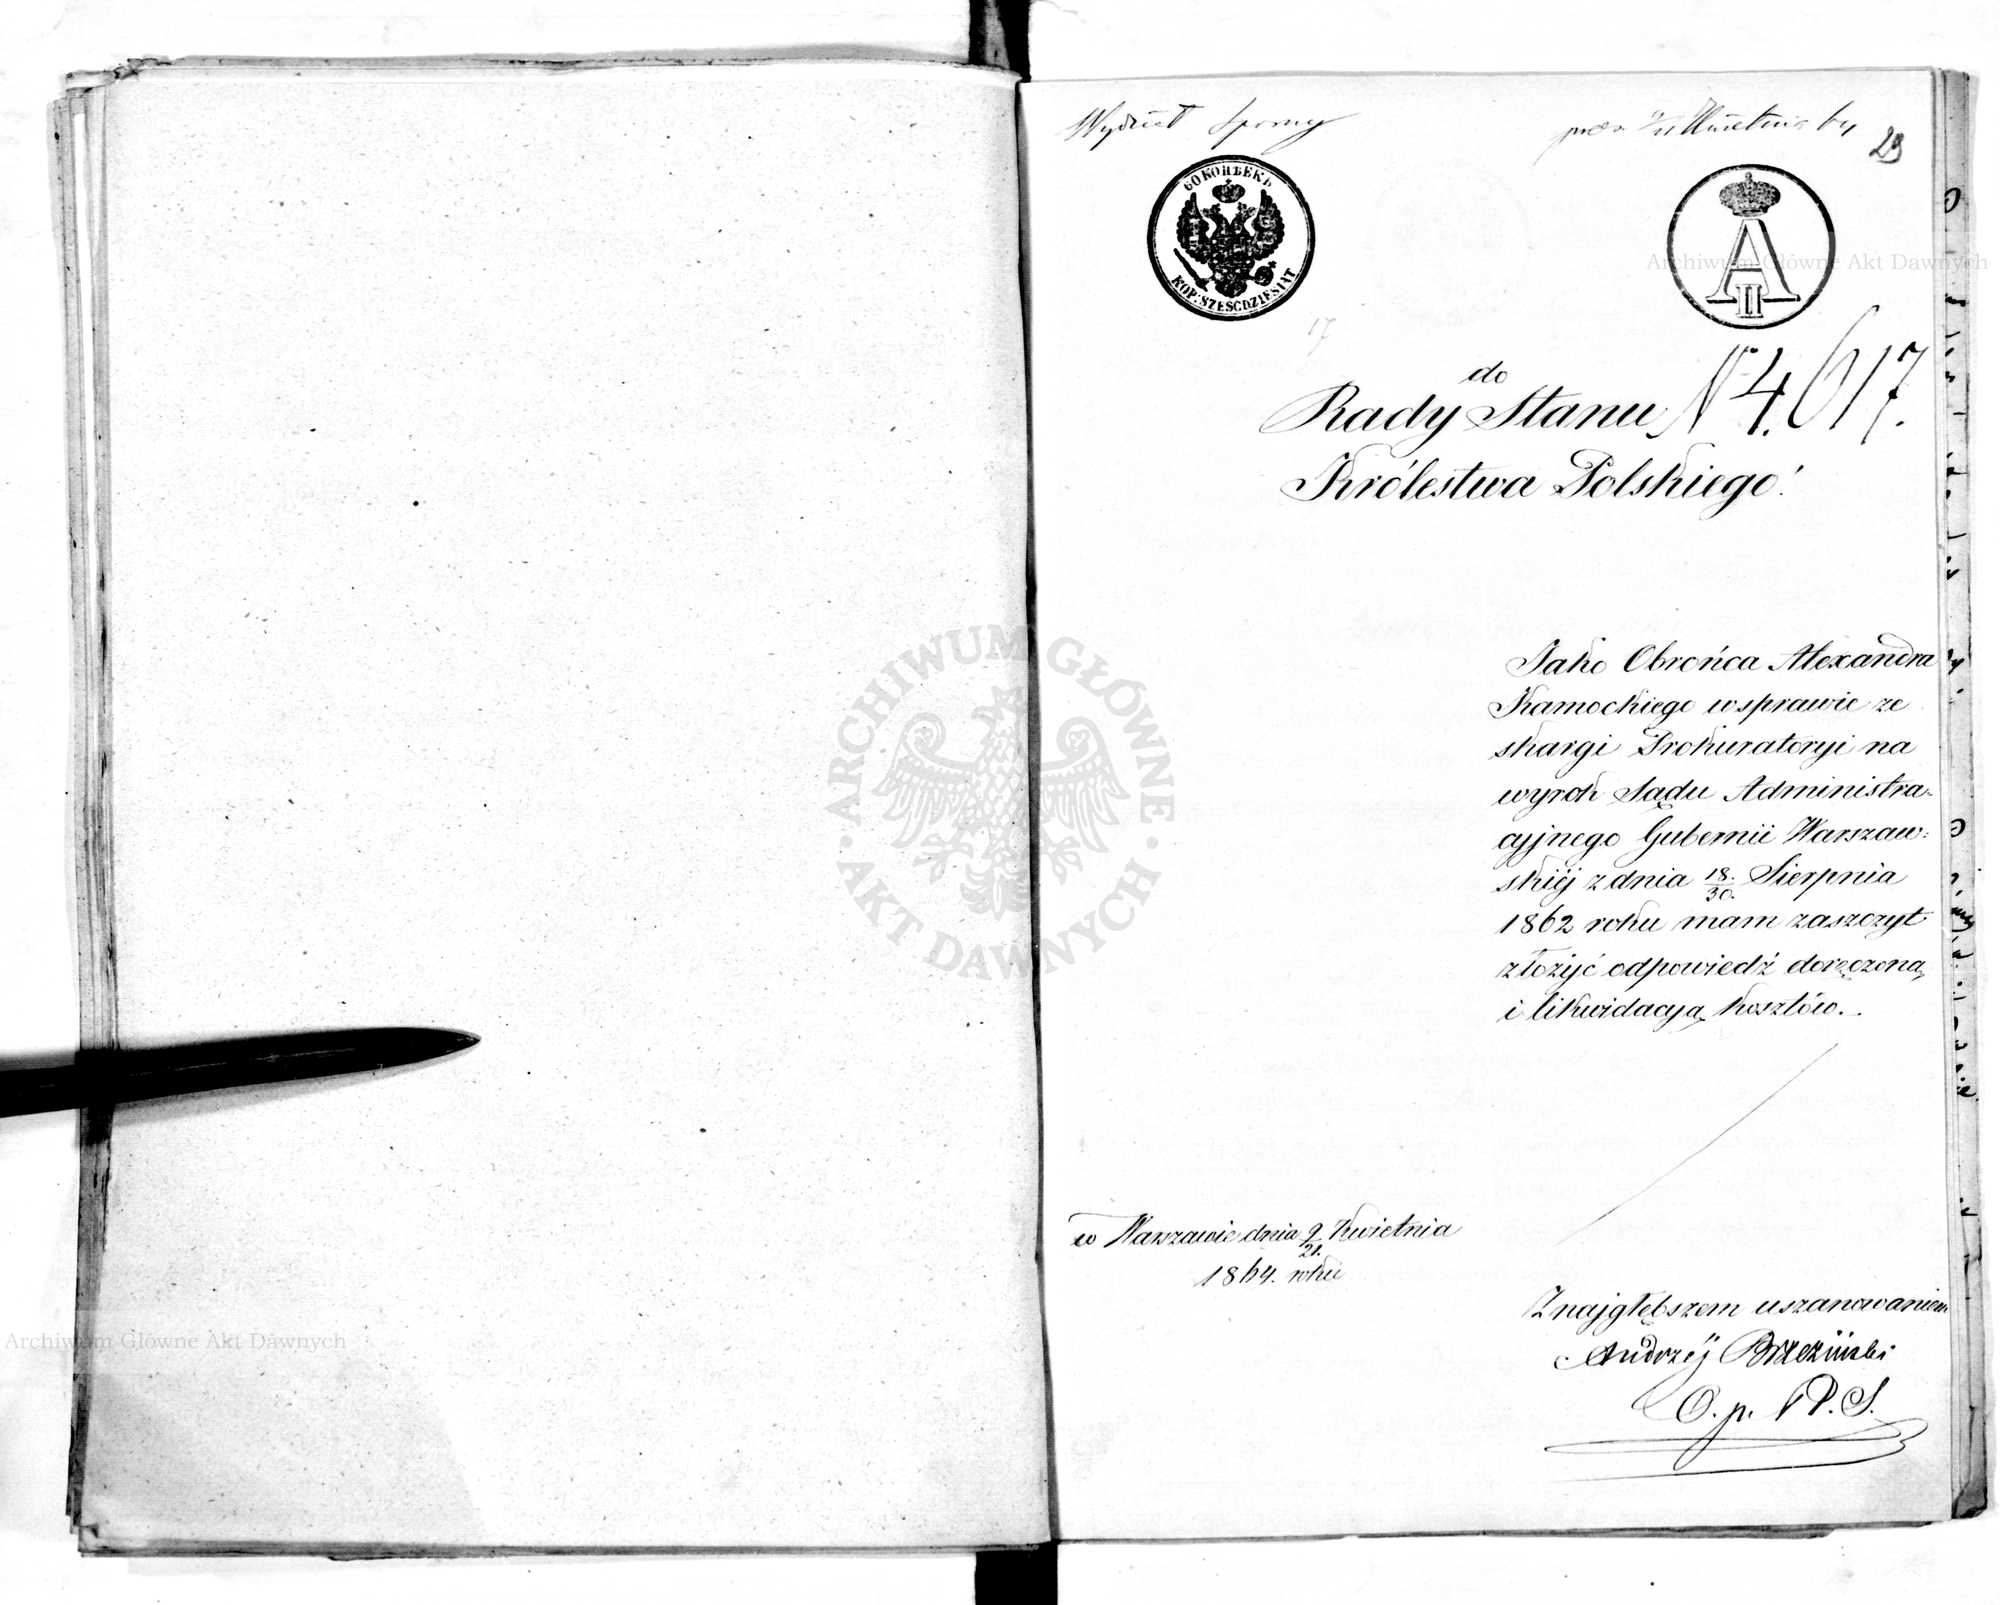 Wydział Sporny
pres. 9/21 Kwietnia 64
23
60 КОПѢЕКЪ
KOP: SZEŚĆDZIESIĄT
A II
17
do
Rady Stanu N 4.617.
Królestwa Polskiego!
Jako Obrońca Alexandra
Kamockiego w sprawie ze
skargi Prokuratoryi na
wyrok Sądu Administra-
cyjnego Gubernii Warszaw:
skiéj z dnia 18/30. Sierpnia
1862 roku mam zaszczyt
złożyć odpowiedź doręczoną
i likwidacyą kosztów.
w Warszawie dnia 9/21. Kwietnia
1864. roku
Z najgłębszem uszanowaniem
Andrzéj Brzeziński
O. p. R. S.
ARCHIWUM GŁÓWNE
AKT DAWNYCH
Archiwum Główne Akt Dawnych
Archiwum Główne Akt Dawnych